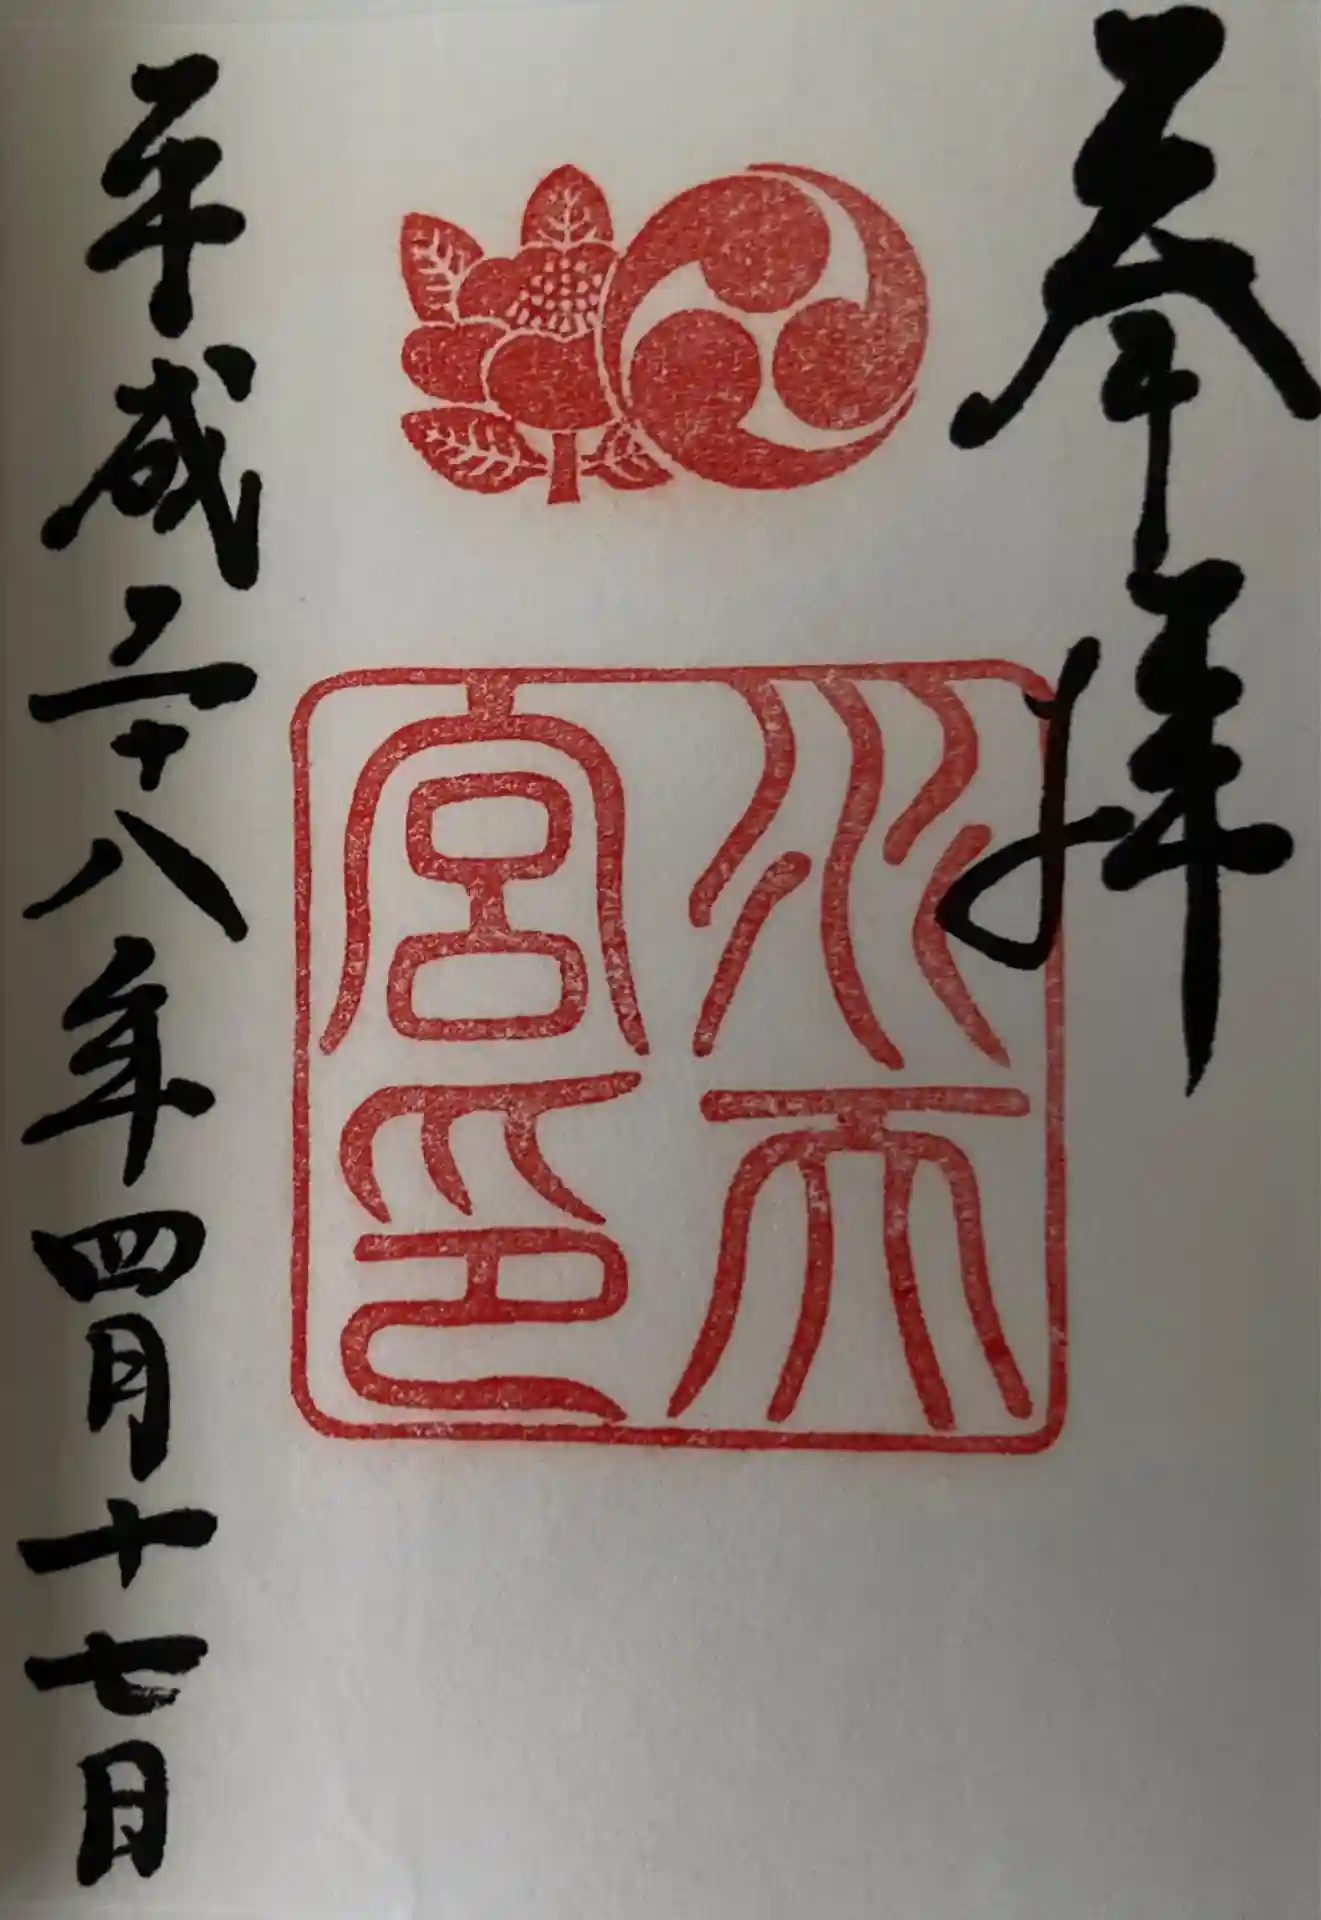 奉拝
水天
宮印
平成二十八年四月十七日